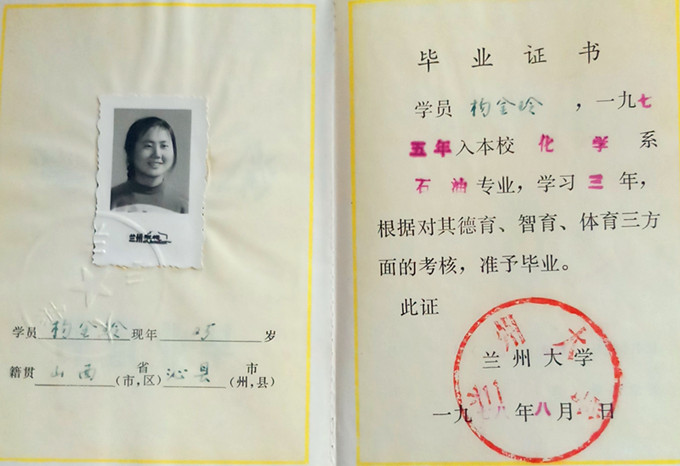 兰州
学员 杨金玲 现年 25 岁
籍贯 山西 省(市,区) 沁县 市(州,县)
毕业证书
学员 杨金玲 ，一九七
五年入本校 化学 系
石油专业，学习三年，
根据对其德育、智育、体育三方
面的考核，准予毕业。
此证
兰州大学
一九七八年八月 日